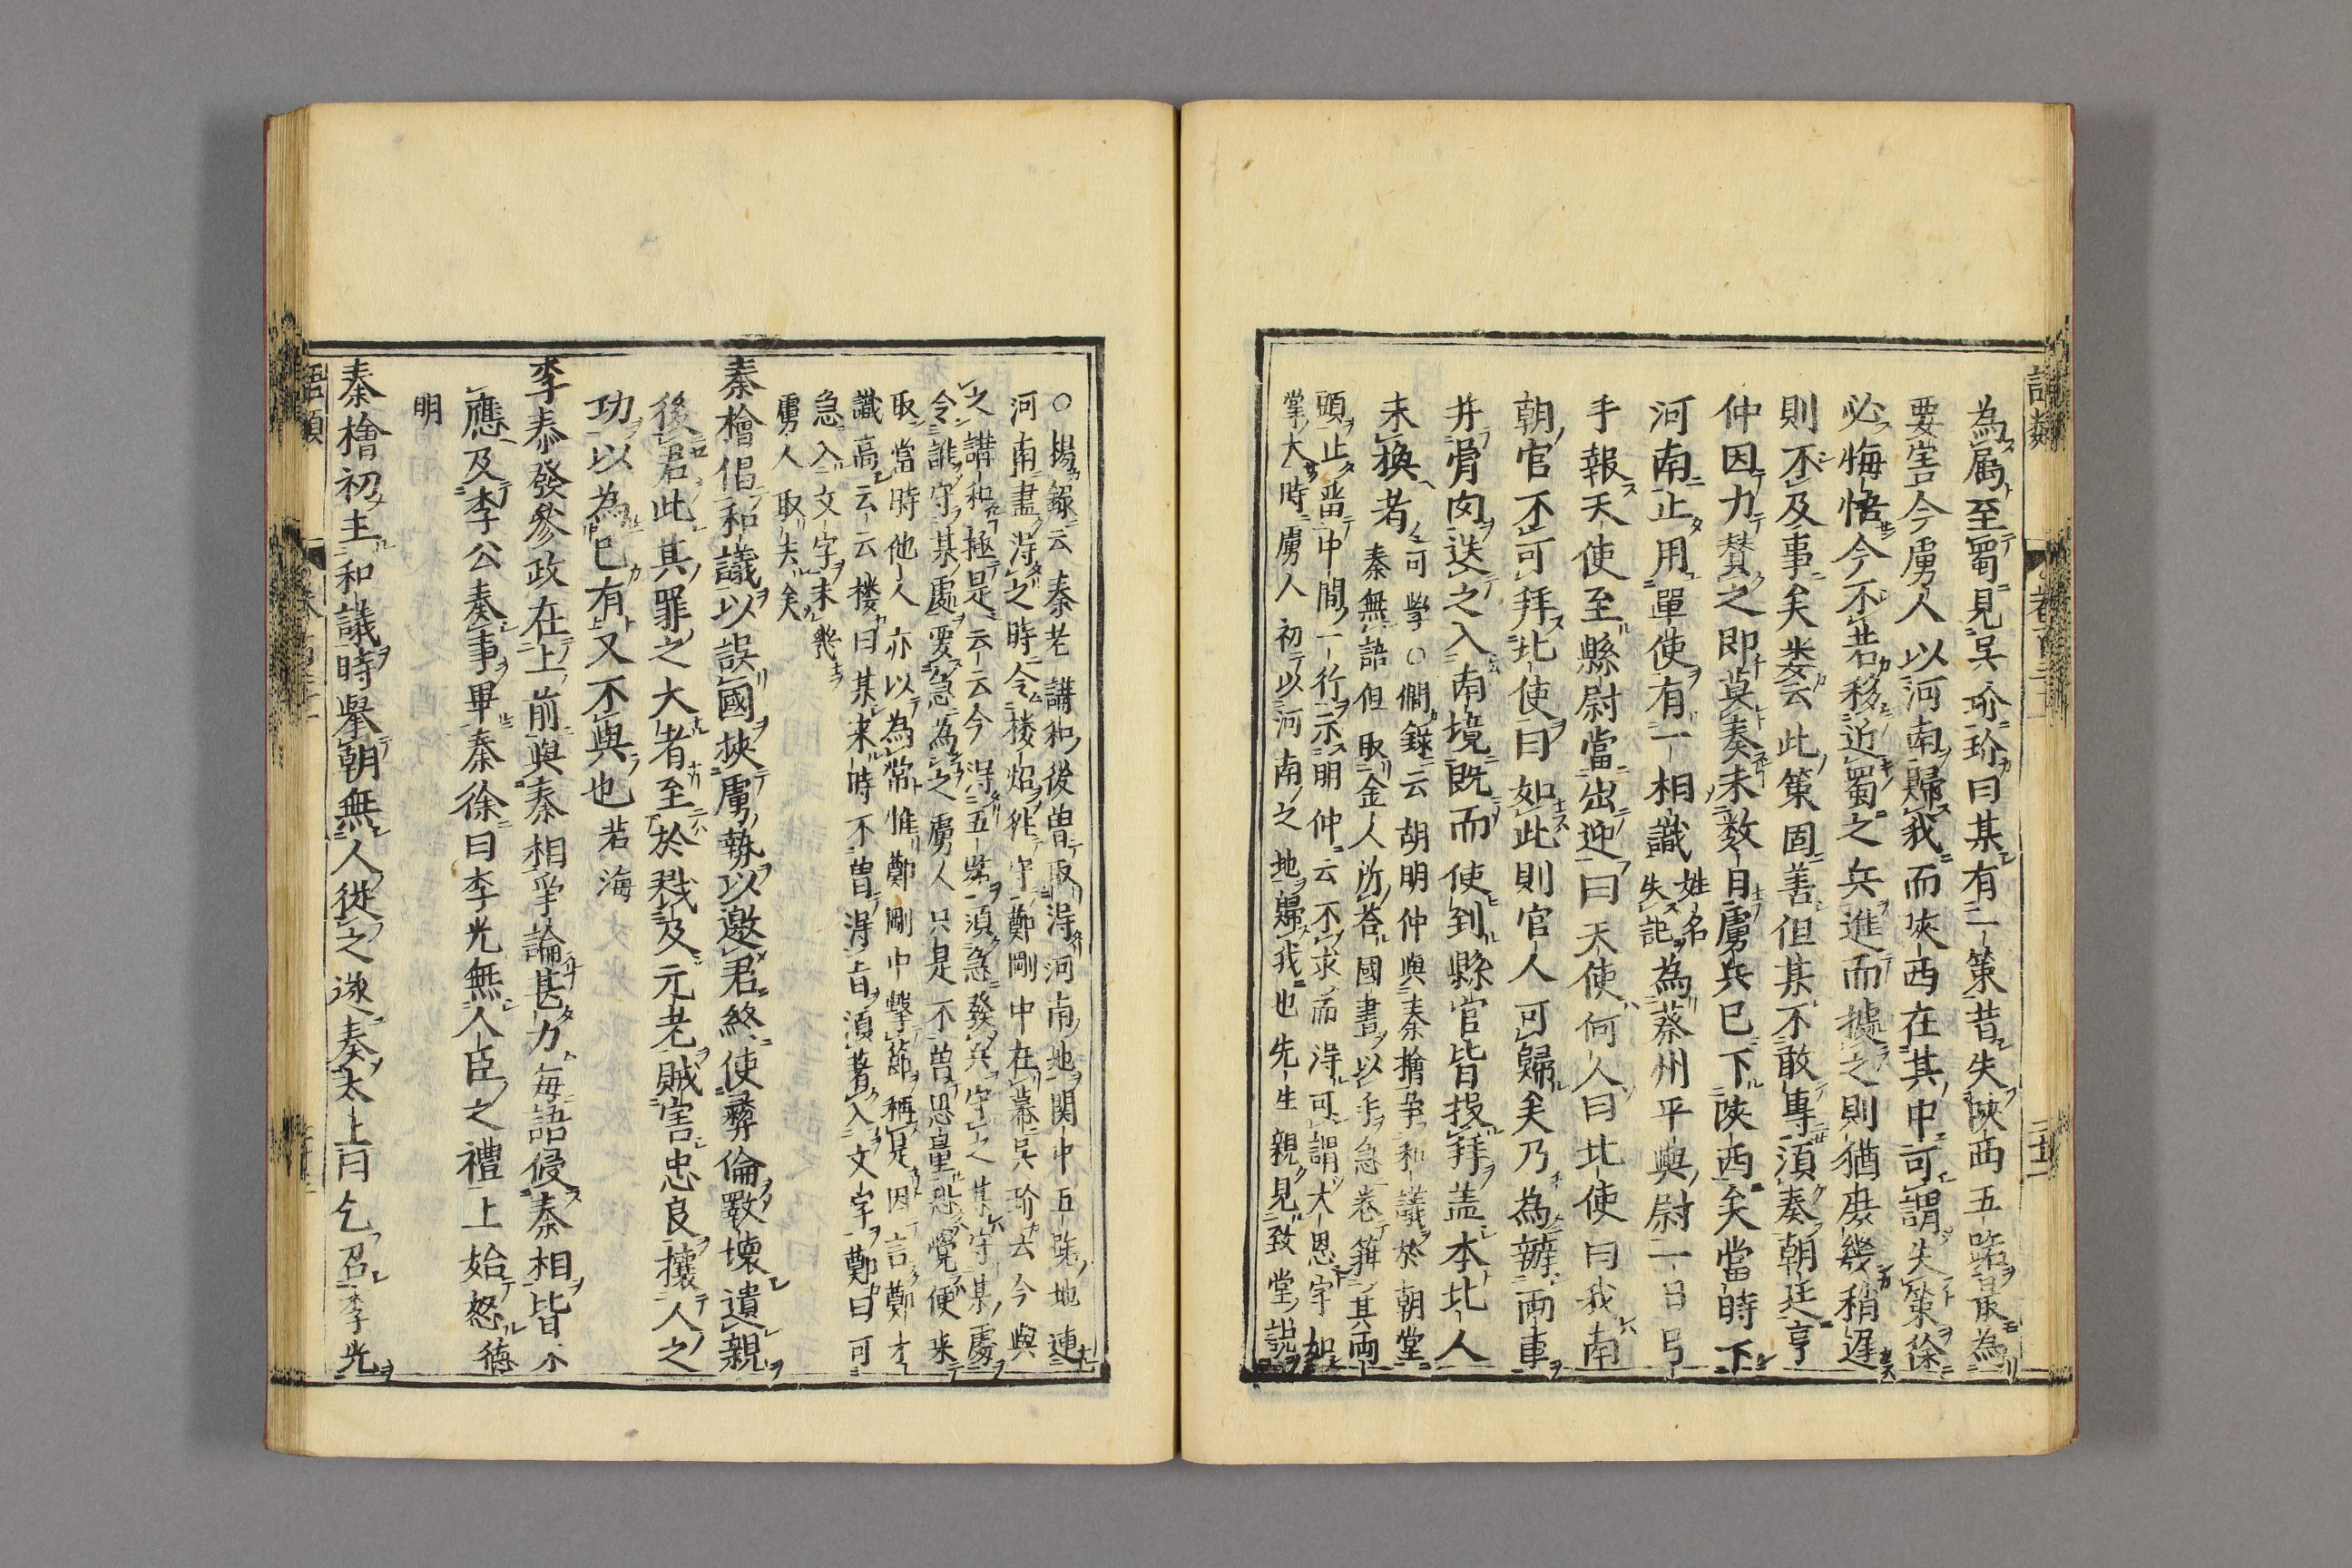 為屬至蜀見吳玠玠曰某有一策昔失陝西五路最為
要害今虜人以河南歸我而陝西在其中可謂失策徐
必悔悟今不若移近蜀之兵進而據之則猶庶幾稍遲
則不及事矣娄云此策固善但某不敢專須奏朝廷亨
仲因力賛之即草奏未數日虜兵巳下陝西矣當時下
河南止用單使有一相識姓名失記為蔡州平輿尉一日弓
手報天使至縣尉當出迎曰天使何人曰北使曰我南
朝官不可拜北使曰如此則官人可歸矣乃為辦兩車
并骨肉送之入南境既而使到縣官皆投拜盖本北人
未換者可學○僴錄云胡明仲與秦檜爭和議於朝堂
秦無語但取金人所荅國書以手急卷籍其兩
頭止畱中間一行示明仲云不求而淂可謂大恩字如
掌大時虜人初以河南之地歸我也先生親見致堂說
○揚錄云秦老講和後曽取淂河南地関中五路地連
河南盡淂之時令楼炤徃守鄭剛中在幕吳玠云今與
之講和極是云云今淂五路須急發兵守之某守某處
令誰守某處要急為之虜人只是不曽思量恐覺便来
取當時他人亦以為常惟鄭剛中擊節稱是因言鄭才
識高云云楼曰某来時不曽淂旨須著入文字鄭曰可
急入文字未幾
虜人取去矣
秦檜倡和議以誤國挾虜勢以邀君終使彝倫斁壞遺親
後君此其罪之大者至於戮及元老賊害忠良攘人之
功以為巳有又不與也若海
李泰發參政在上前與秦相爭論甚力每語侵秦相皆不
應及李公奏事畢秦徐曰李光無人臣之禮上始怒德
明
秦檜初主和議時舉朝無人從之遂奏太上曰乞召李光